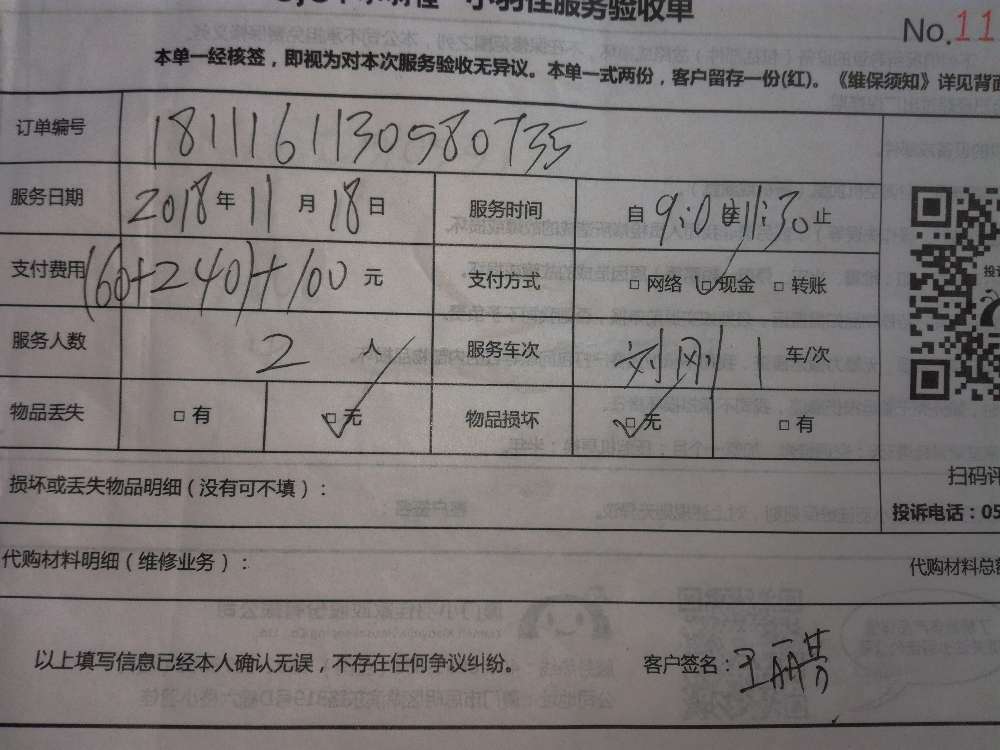 小羽佳服务验收单
No.11
本单一经核签，即视为对本次服务验收无异议。本单一式两份，客户留存一份(红)。《维保须知》详见背面
订单编号 1811161130980735
服务日期 2018年11月18日 服务时间 自9:0至11:30止
支付费用 (60+240)+100元 支付方式 □网络 □现金 □转账
服务人数 2人 服务车次 刘刚 1 车/次
物品丢失 □有 □无 物品损坏 □无 □有
损坏或丢失物品明细（没有可不填）：
扫码评
投诉电话：05
代购材料明细（维修业务）：
代购材料总额
以上填写信息已经本人确认无误，不存在任何争议纠纷。 客户签名：王丽芳